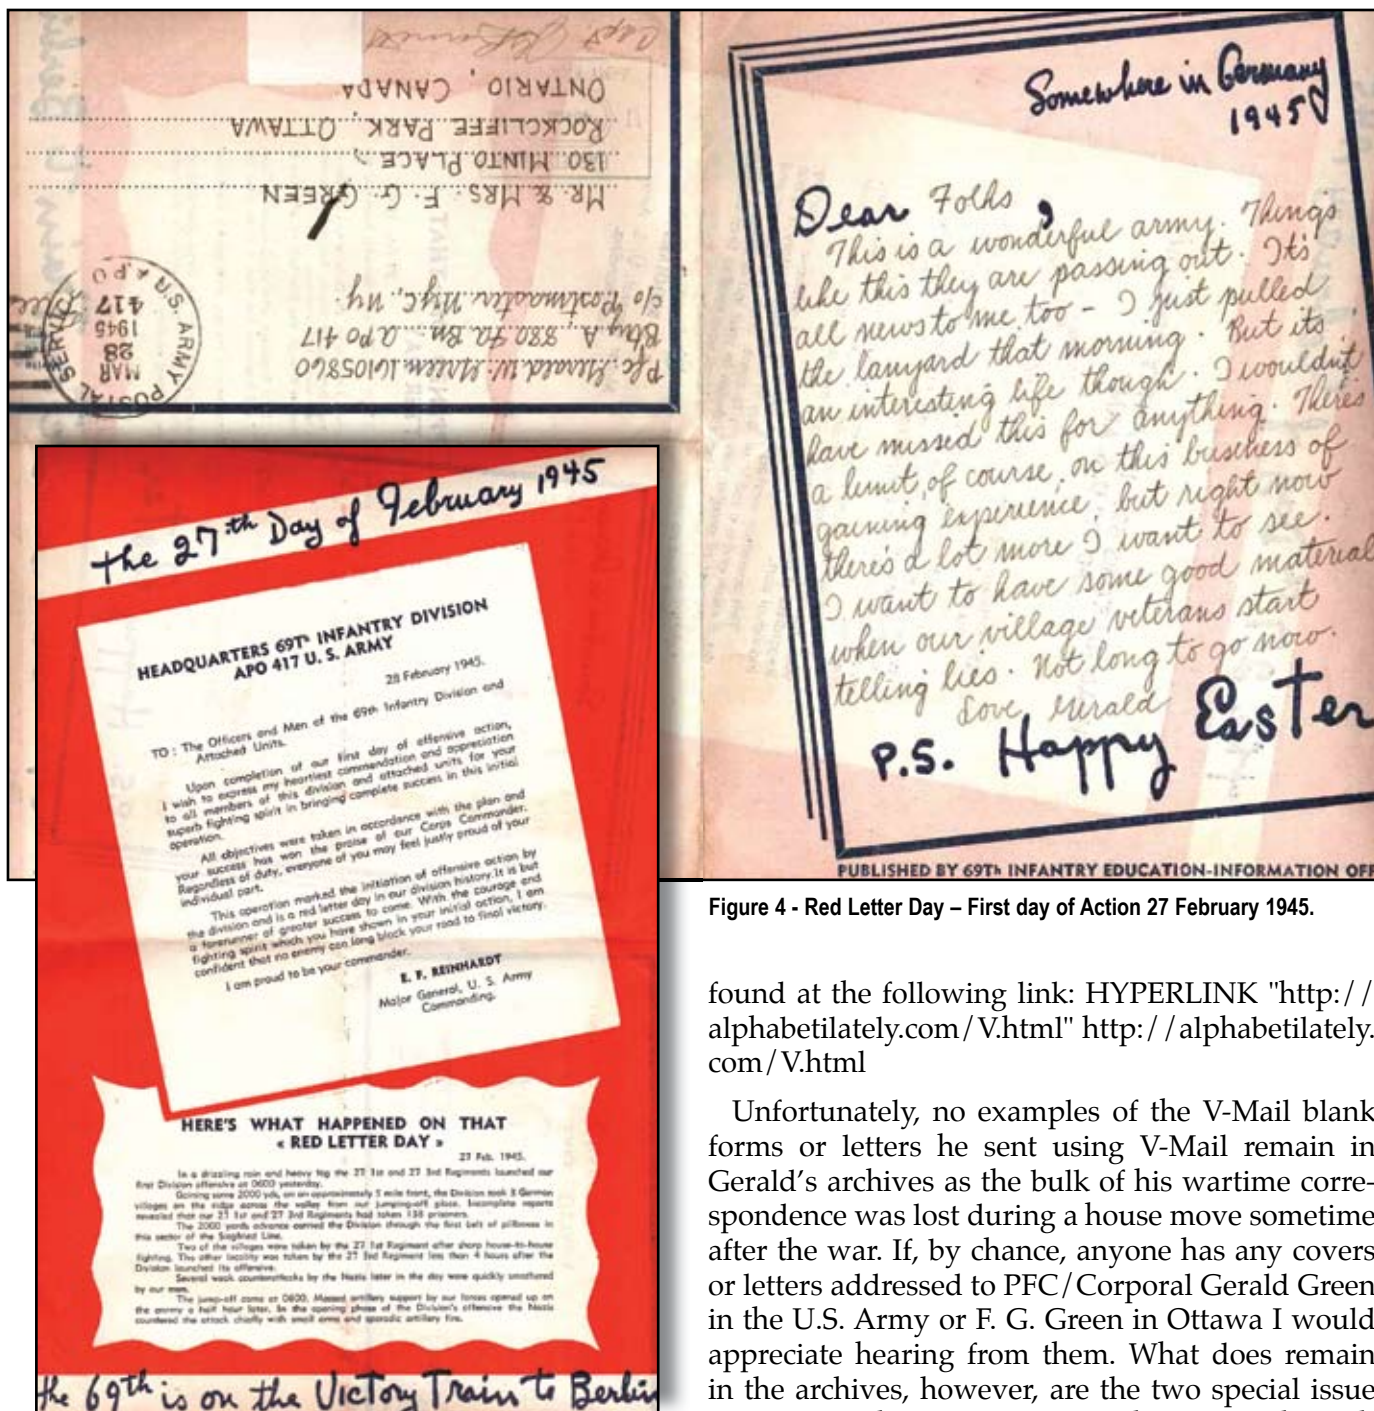 Capt.
MR & MRS. F. G. GREEN
130 MINTO PLACE,
ROCKCLIFFE PARK, OTTAWA
ONTARIO, CANADA
Pfc Gerald W. Green 16105860
Btry A, 880 Fa Bn. APO 417
c/o Postmaster, NyC, Ny.
U.S. ARMY POSTAL SERVICE
A.P.O.
MAR
28
1945
417
Somewhere in Germany
1945
Dear Folks,
This is a wonderful army. Things
like this they are passing out. It's
all news to me too - I just pulled
the lanyard that morning. But its
an interesting life though. I wouldn't
have missed this for anything. There's
a limit, of course, on this business of
gaining experience, but right now
there's a lot more I want to see.
I want to have some good material
when our village veterans start
telling lies. Not long to go now.
Love, Gerald
P.S. Happy Easter
PUBLISHED BY 69Th INFANTRY EDUCATION-INFORMATION OFF
the 27th Day of February 1945
HEADQUARTERS 69Th INFANTRY DIVISION
APO 417 U. S. ARMY
28 February 1945.
TO : The Officers and Men of the 69th Infantry Division and
Attached Units.
Upon completion of our first day of offensive action,
I wish to express my heartiest commendation and appreciation
to all members of this division and attached units for your
superb fighting spirit in bringing complete success in this initial
operation.
All objectives were taken in accordance with the plan and
your success has won the praise of our Corps Commander.
Regardless of duty, everyone of you may feel justly proud of your
individual part.
This operation marked the initiation of offensive action by
the division and is a red letter day in our division history. It is but
a forerunner of greater success to come. With the courage and
fighting spirit which you have shown in your initial action, I am
confident that no enemy can long block your road to final victory.
I am proud to be your commander.
E. F. REINHARDT
Major General, U. S. Army
Commanding.
HERE'S WHAT HAPPENED ON THAT
« RED LETTER DAY »
27 Feb. 1945.
In a drizzling rain and heavy fog the 27 1st and 27 3rd Regiments launched our
first Division offensive at 0600 yesterday.
Gaining some 2000 yds, on an approximately 5 mile front, the Division took 3 German
villages on the ridge across the valley from our jumping-off place. Incomplete reports
revealed that our 27 1st and 27 3rd Regiments had taken 138 prisoners.
The 2000 yards advance carried the Division through the first belt of pillboxes in
this sector of the Siegfried Line.
Two of the villages were taken by the 27 1st Regiment after sharp house-to-house
fighting. The other locality was taken by the 27 3rd Regiment less than 4 hours after the
Division launched its offensive.
Several weak counterattacks by the Nazis later in the day were quickly smothered
by our men.
The jump-off came at 0600. Massed artillery support by our forces opened up on
the enemy a half hour later. In the opening phase of the Division's offensive the Nazis
countered the attack chiefly with small arms and sporadic artillery fire.
the 69th is on the Victory Train to Berlin
Figure 4 - Red Letter Day – First day of Action 27 February 1945.
found at the following link: HYPERLINK "http://
alphabetilately.com/V.html" http://alphabetilately.
com/V.html
Unfortunately, no examples of the V-Mail blank
forms or letters he sent using V-Mail remain in
Gerald's archives as the bulk of his wartime corre-
spondence was lost during a house move sometime
after the war. If, by chance, anyone has any covers
or letters addressed to PFC/Corporal Gerald Green
in the U.S. Army or F. G. Green in Ottawa I would
appreciate hearing from them. What does remain
in the archives, however, are the two special issue